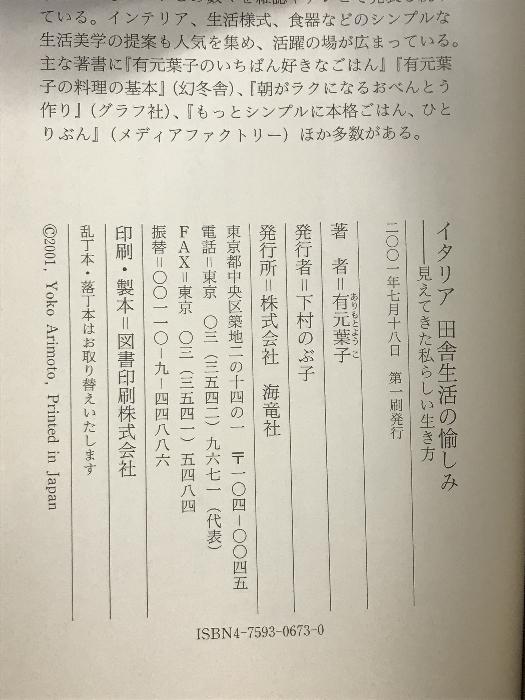 ている。インテリア、生活様式、食器などのシンプルな
生活美学の提案も人気を集め、活躍の場が広まっている。
主な著書に『有元葉子のいちばん好きなごはん』『有元葉
子の料理の基本』（幻冬舎）、『朝がラクになるおべんとう
作り』（グラフ社）、『もっとシンプルに本格ごはん、ひと
りぶん』（メディアファクトリー）ほか多数がある。
イタリア 田舎生活の愉しみ
――見えてきた私らしい生き方
二〇〇一年七月十八日 第一刷発行
著 者＝有元葉子
ありもとようこ
発行者＝下村のぶ子
発行所＝株式会社 海竜社
東京都中央区築地二の十四の一 〒一〇四－〇〇四五
電話＝東京 〇三（三五四二）九六七一（代表）
FAX＝東京 〇三（三五四一）五四八四
振替＝〇〇一一〇－九－四四八八六
印刷・製本＝図書印刷株式会社
乱丁本・落丁本はお取り替えいたします
©2001, Yoko Arimoto, Printed in Japan
ISBN4-7593-0673-0